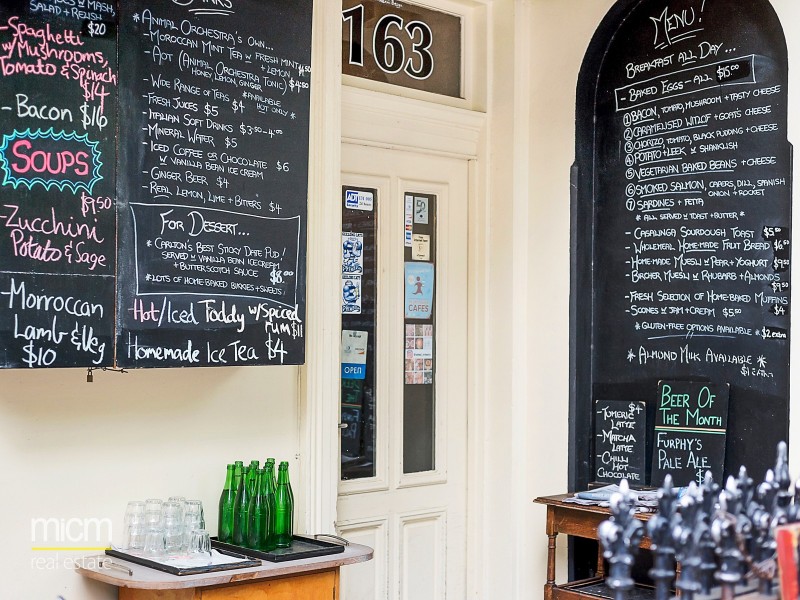 & MASH,
SALAD + RELISH
$20
-Spaghetti
w/ Mushrooms,
Tomato & Spinach
$14
-Bacon $16
SOUPS
$9.50
-Zucchini
Potato & Sage
-Morroccan
Lamb & Veg
$10
*Animal Orchestra's Own...
-Moroccan Mint Tea w/ Fresh Mint
+ Lemon, $4.50
-AOT (Animal Orchestra Tonic)
Honey, Lemon, Ginger
*Available Hot Only*
-Wide Range of Teas $4
-Fresh Juices $5
-Italian Soft Drinks $3.50-4.00
-Mineral Water $5
-Iced Coffee or Chocolate $6
w/ Vanilla Bean Ice Cream
-Ginger Beer $4
-Real Lemon, Lime + Bitters $4
For Dessert...
*Carlton's Best Sticky Date Pud!
Served w/ Vanilla Bean Icecream
+ Butterscotch Sauce $8.00
*Lots of Home-Baked Bikkies + Sweets!
Hot/Iced Toddy w/ Spiced
rum $11
Homemade Ice Tea $4
163
ADT
CAFES
OPEN
MENU!
Breakfast All Day...
-Baked Eggs - All $15.00
① Bacon, Tomato, Mushroom + Tasty Cheese
② Caramelised Witlof + Goats Cheese
③ Chorizo, Tomato, Black Pudding + Cheese
④ Potato + Leek w/ Shanklish
⑤ Vegetarian Baked Beans + Cheese
⑥ Smoked Salmon, Capers, Dill, Spanish
Onion + Rocket
⑦ Sardines + Fetta
*All Served w/ Toast + Butter*
-Casalinga Sourdough Toast $5.50
-Wholemeal Home-Made Fruit Bread $6.50
-Home-Made Muesli w/ Pear + Yoghurt $9.50
-Bircher Muesli w/ Rhubarb + Almonds
$9.50
-Fresh Selection of Home-Baked Muffins
$4
-Scones w/ Jam + Cream $5.50
*Gluten-Free Options Available* $2 extra
*Almond Milk Available*
$1 extra
$4
-Tumeric
Latte
-Matcha
Latte
-Chilli
Hot
Chocolate
Beer Of
The Month
Furphy's
Pale Ale
micm
real estate